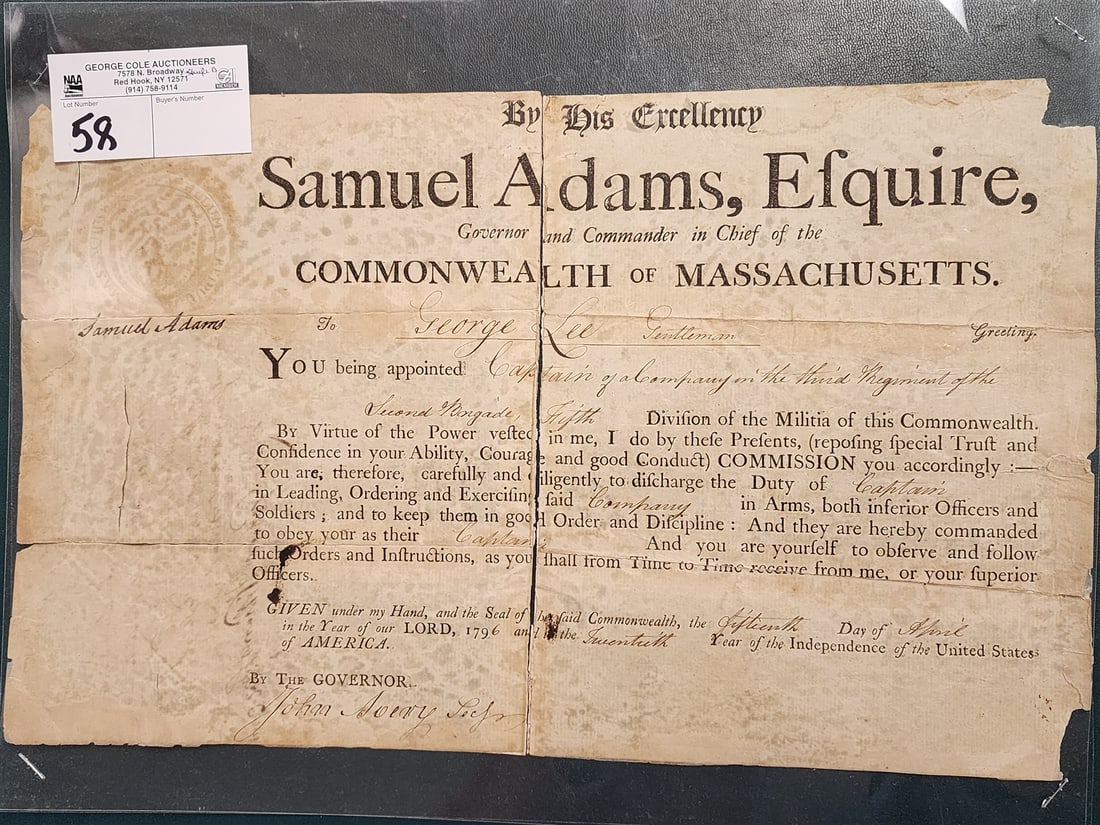 GEORGE COLE AUCTIONEERS
7578 N. Broadway
Red Hook, NY 12571
(914) 758-9114
NAA
MEMBER
Lot Number
Buyer's Number
58
By His Excellency
Samuel Adams, Eſquire,
Governor and Commander in Chief of the
COMMONWEALTH OF MASSACHUSETTS.
Samuel Adams To George Lee Gentleman Greeting.
YOU being appointed Captain of a Company in the third Regiment of the
Second Brigade, Fifth Diviſion of the Militia of this Commonwealth.
By Virtue of the Power veſted in me, I do by theſe Preſents, (repoſing ſpecial Truſt and
Confidence in your Ability, Courage and good Conduct) COMMISSION you accordingly :—
You are, therefore, carefully and diligently to diſcharge the Duty of Captain
in Leading, Ordering and Exerciſing ſaid Company in Arms, both inferior Officers and
Soldiers ; and to keep them in good Order and Diſcipline : And they are hereby commanded
to obey your as their Captain And you are yourſelf to obſerve and follow
ſuch Orders and Inſtructions, as you ſhall from Time to Time receive from me, or your ſuperior
Officers.
GIVEN under my Hand, and the Seal of the ſaid Commonwealth, the fifteenth Day of April
in the Year of our LORD, 1796 and in the Twentieth Year of the Independence of the United States
of AMERICA.
BY THE GOVERNOR.
John Avery Secy